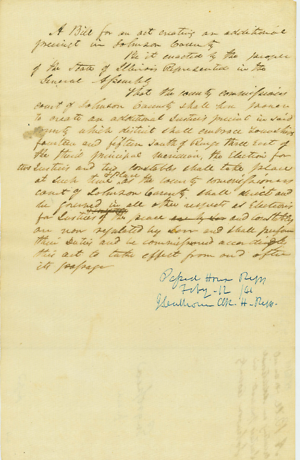 A Bill for an act creating an additional
precinct in Johnson County
Be it enacted by the people
of the State of Illinois Represented in the
General Assembly
That the county commissioners
court of Johnson County shall have power
to create an additional Justices precinct in said
county which district shall embrace townships
fourteen and fifteen South of Range three east of
the third principal meridian, the Election for
two Justices and two constables shall take place
at such time & place as the county commissioners
court of Johnson County shall direct and
be governed in all other respects as Elections
for Justices of the peace and constables
are now regulated by Law and shall perform
their duties and be commissioned accordingly
this act to take effect from and after
its passage
Passed House Reps
Feby 12 /41
Clk. H. Reps.